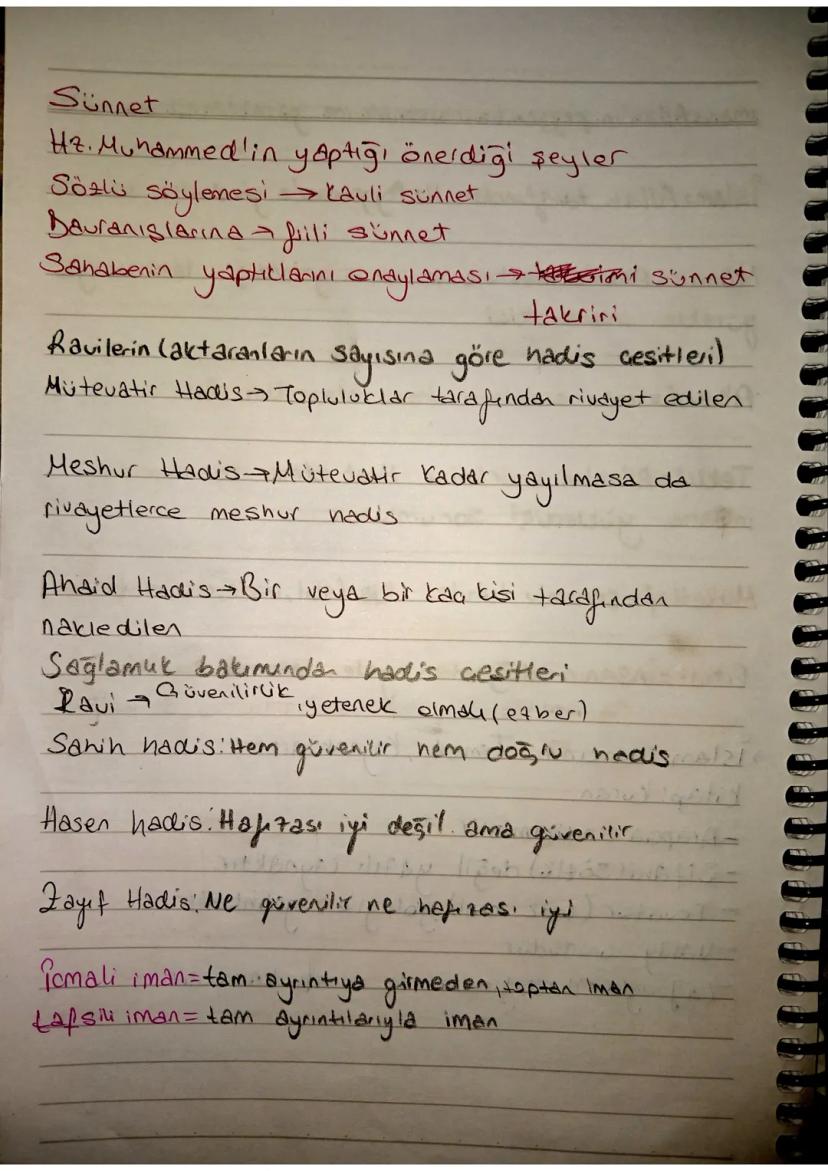 Sünnet
Hz. Muhammed'in yaptığı önerdiği şeyler
Sözlü söylemesi → kauli sünnet
Davranışlarına → fiili sünnet
Sahabenin yaptıklarını onaylaması → sünnet
takriri
Ravilerin (aktaranların sayısına göre hadis cesitleri)
Mütevatir Hadis → Topluluklar tarafından rivayet edilen
Meshur Hadis → Mütevatir kadar yayılmasa da
rivayetlerce meshur hadis
Ahaid Hadis → Bir veya bir kac kisi tarafından
nakledilen
Sağlamlık bakımından hadis cesitleri
Ravi → Güvenilirlik, yetenek olmalı (ezber)
Sahih hadis: Hem güvenilir hem doğru hadis
Hasen hadis: Hafızası iyi değil ama güvenilir
Zayıf Hadis: Ne güvenilir ne hafızası iyi
İcmali iman = tam ayrıntıya girmeden, toptan iman
tafsili iman = tam ayrıntılarıyla iman